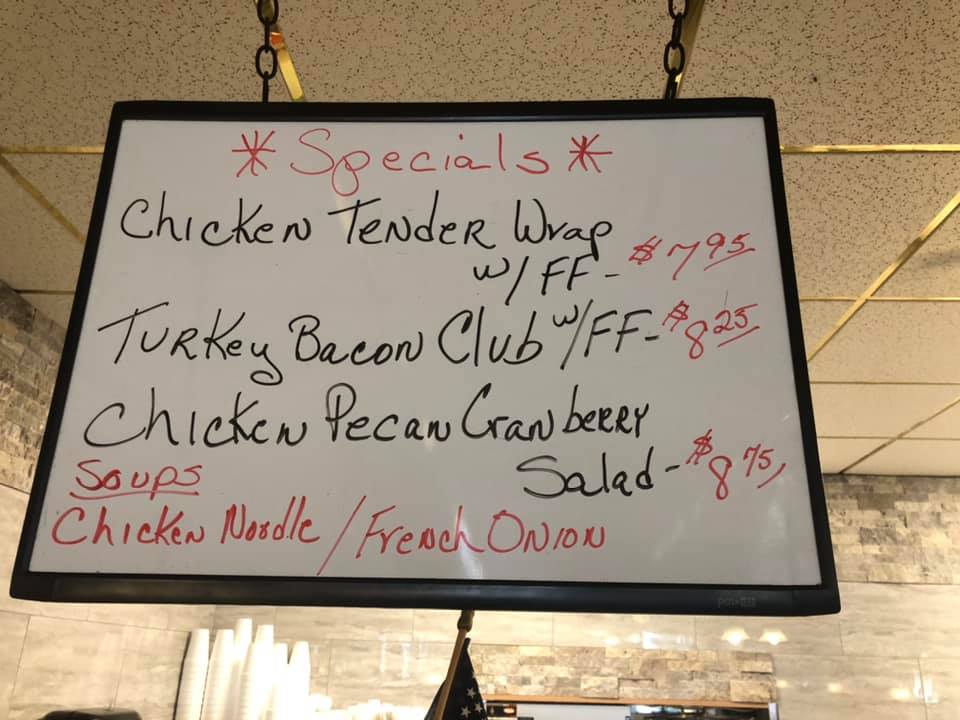 * Specials *
Chicken Tender Wrap
w/ FF - $7.95
Turkey Bacon Club w/ FF - $8.25
Chicken Pecan Cranberry
Salad - $8.75
Soups
Chicken Noodle / French Onion